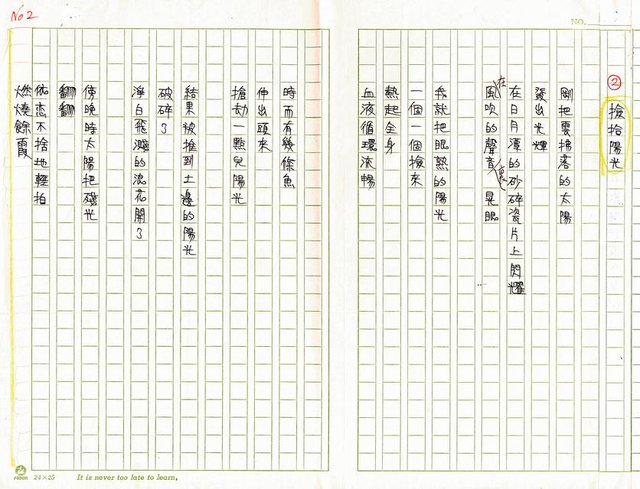 No 2
NO.
②
撿拾陽光
剛把雲拂落的太陽
發出光輝
在日月潭的砂碎瓷片上閃耀
在風吹的聲音晃眠
我就把眠熱的陽光
一個一個撿來
熱起全身
血液循環流暢
時而有幾條魚
伸出頭來
搶劫一點兒陽光
結果被推到土邊的陽光
破碎了
淨白飛濺的浪花開了
傍晚時太陽把磷光
翻翻
依恋不捨地輕拍
燃燒餘霞
24×25
It is never too late to learn,